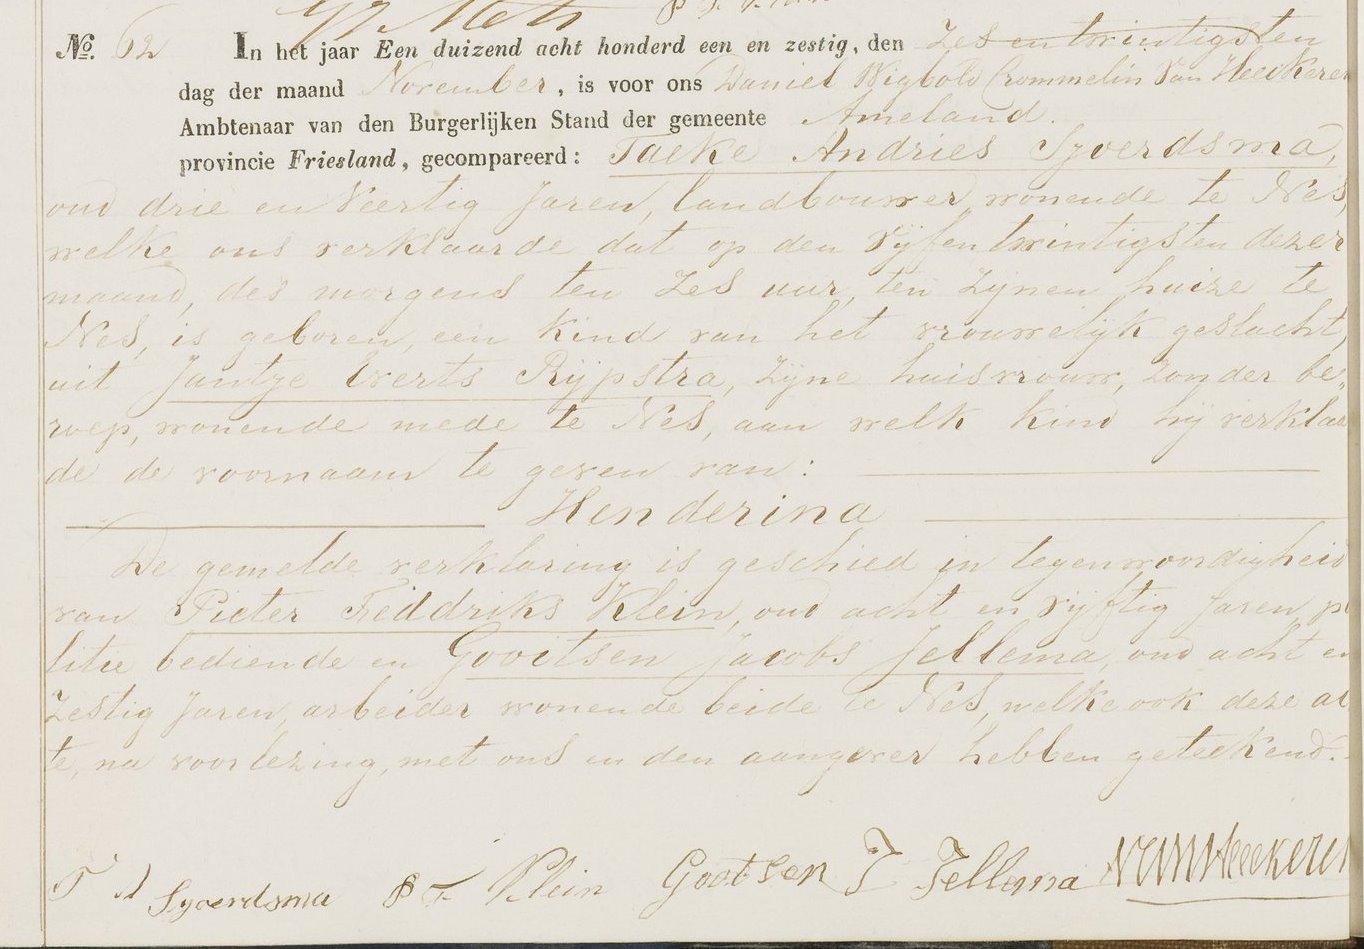 No. 62 In het jaar Een duizend acht honderd een en zestig, den zes en twintigsten
dag der maand November, is voor ons Daniel Wigbold Crommelin Van Heeckeren
Ambtenaar van den Burgerlijken Stand der gemeente Ameland.
provincie Friesland, gecompareerd: Taeke Andries Sjoerdsma,
oud drie en Veertig Jaren, landbouwer wonende te Nes,
welke ons verklaarde dat op den vijfentwintigsten dezer
maand, des morgens ten zes uur, ten zijnen huize te
Nes, is geboren, een kind van het vrouwelijk geslacht,
uit Jantje Everts Rijpstra, zijne huisvrouw, zonder be„
roep, wonende mede te Nes, aan welk kind hij verklaar
de de voornaam te geven van:
Henderina
De gemelde verklaring is geschied in tegenwoordigheid
van Pieter Feddriks Klein, oud acht en vijftig Jaren, po
litie bediende en Gooitsen Jacobs Jellema, oud acht en
zestig Jaren, arbeider wonende beide te Nes, welke ook deze ac
te, na voorlezing, met ons en den aangever hebben geteekend.
T A Sjoerdsma P F Klein Gootsen J Jellema VanHeeckeren